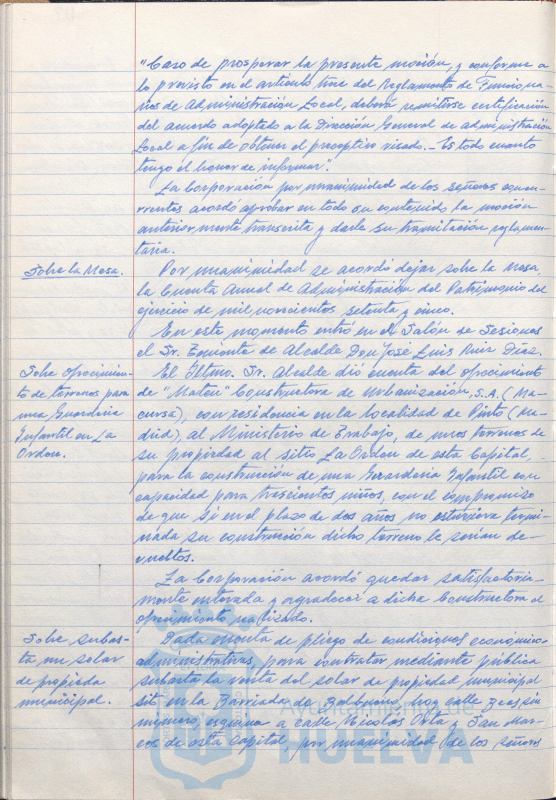 "Caso de prosperar la presente moción, y conforme a
lo previsto en el artículo once del Reglamento de Funciona-
rios de Administración Local, deberá remitirse certificación
del acuerdo adoptado a la Dirección General de Administración
Local a fin de obtener el preceptivo visado.- Es todo cuanto
tengo el honor de informar".
La Corporación por unanimidad de los señores concu-
rrentes acordó aprobar en todo su contenido la moción
anteriormente transcrita y darle su tramitación reglamen-
taria.
Sobre la Mesa.
Por unanimidad se acordó dejar sobre la Mesa,
la Cuenta Anual de Administración del Patrimonio del
ejercicio de mil novecientos setenta y cinco.
En este momento entró en el Salón de Sesiones
el Sr. Teniente de Alcalde Don José Luis Ruiz Díaz.
Sobre ofrecimien-
to de terrenos para
una Guardería
Infantil en La
Orden.
El Iltmo. Sr. Alcalde dió cuenta del ofrecimiento
de "Mateu" Constructora de Urbanización, S.A. (Ma-
cursa), con residencia en la localidad de Pinto (Ma-
drid), al Ministerio de Trabajo, de unos terrenos de
su propiedad al sitio La Orden de esta Capital,
para la construcción de una Guardería Infantil con
capacidad para trescientos niños, con el compromiso
de que si en el plazo de dos años no estuviera termi-
nada su construcción dicho terreno le serían de-
vueltos.
La Corporación acordó quedar satisfactoria-
mente enterada y agradecer a dicha Constructora el
ofrecimiento realizado.
Sobre subas-
ta un solar
de propieda
municipal.
Dada cuenta de pliego de condiciones económico-
administrativas para contratar mediante pública
subasta la venta del solar de propiedad municipal
sito en la Barriada de Balbueno, hoy calle
número, esquina a calle Nicolás Orta y San Mar-
cos de esta capital, por unanimidad de los señores
Ayuntamiento de
HUELVA